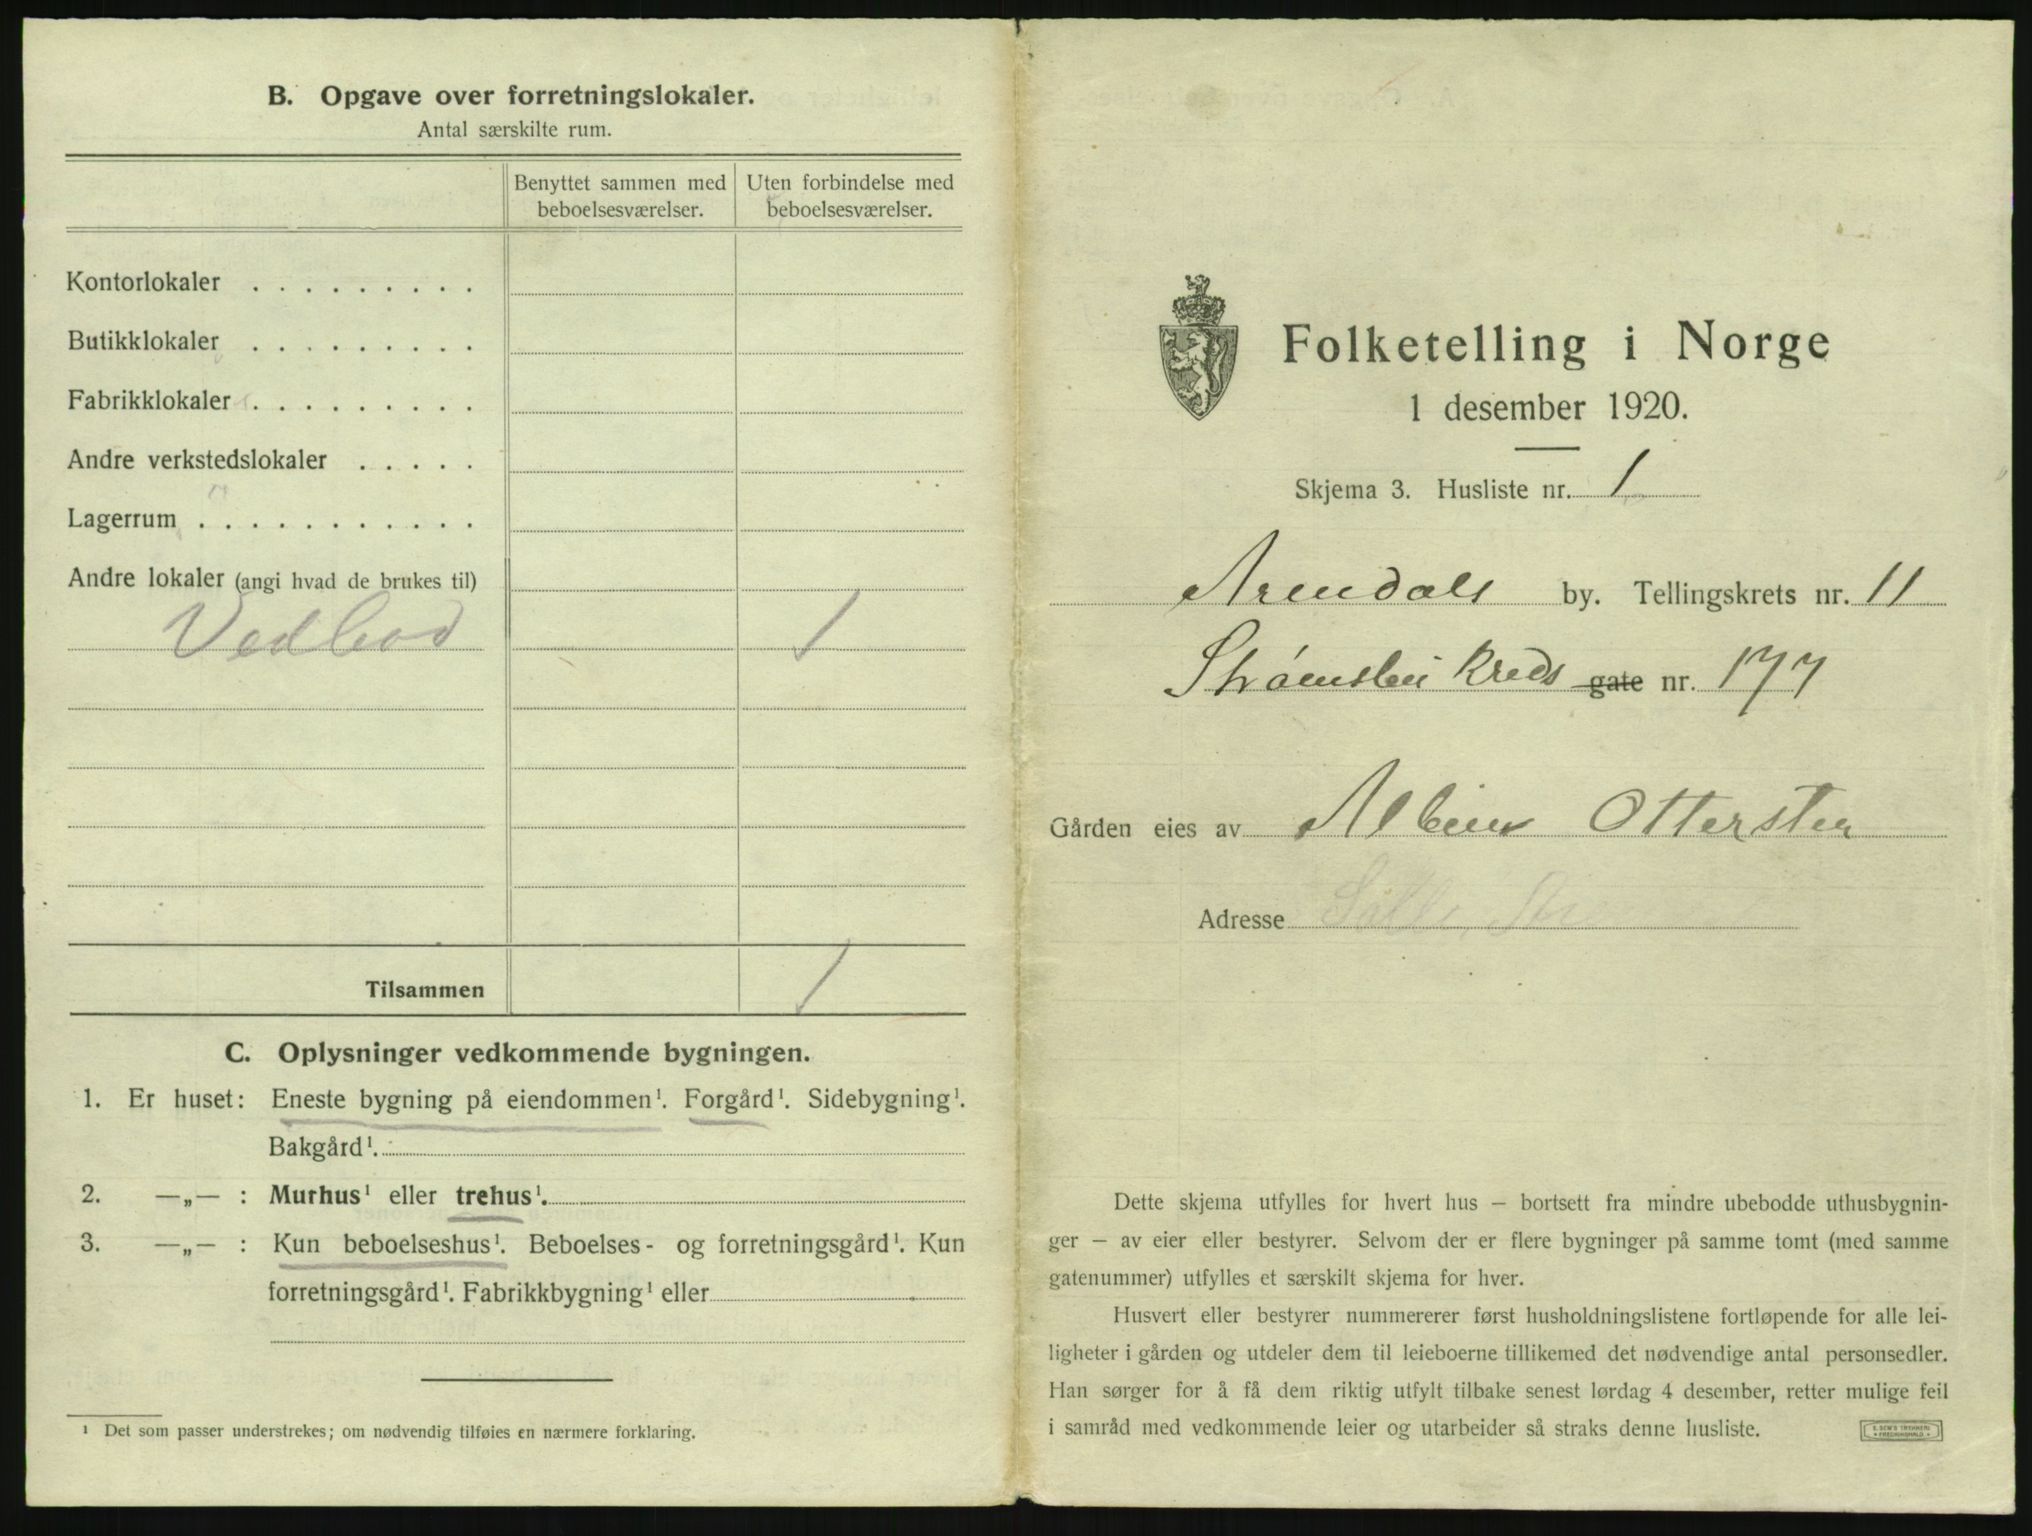 B. Opgave over forretningslokaler.
Antal særskilte rum.
Benyttet sammen med beboelsesværelser.
Uten forbindelse med beboelsesværelser.
Kontorlokaler . . . . . . . . .
Butikklokaler . . . . . . . . .
Fabrikklokaler . . . . . . . . .
Andre verkstedslokaler . . . . .
Lagerrum . . . . . . . . . . .
Andre lokaler (angi hvad de brukes til)
Vedbod 1
Tilsammen 1
C. Oplysninger vedkommende bygningen.
1. Er huset: Eneste bygning på eiendommen¹. Forgård¹. Sidebygning¹.
Bakgård¹.
2. —„— : Murhus¹ eller trehus¹.
3. —„— : Kun beboelseshus¹. Beboelses- og forretningsgård¹. Kun
forretningsgård¹. Fabrikkbygning¹ eller
¹ Det som passer understrekes; om nødvendig tilføies en nærmere forklaring.
Folketelling i Norge
1 desember 1920.
Skjema 3. Husliste nr. 1
Arendals by. Tellingskrets nr. 11
Strømsbu Kreds gate nr. 177
Gården eies av Albin Ottersten
Adresse
Dette skjema utfylles for hvert hus — bortsett fra mindre ubebodde uthusbygnin-
ger — av eier eller bestyrer. Selvom der er flere bygninger på samme tomt (med samme
gatenummer) utfylles et særskilt skjema for hver.
Husvert eller bestyrer nummererer først husholdningslistene fortløpende for alle lei-
ligheter i gården og utdeler dem til leieboerne tillikemed det nødvendige antal personsedler.
Han sørger for å få dem riktig utfylt tilbake senest lørdag 4 desember, retter mulige feil
i samråd med vedkommende leier og utarbeider så straks denne husliste.